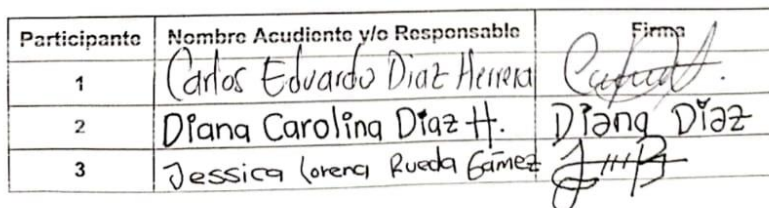 Participante Nombre Acudiente y/o Responsable Firma
1 Carlos Eduardo Diaz Herrera
2 Diana Carolina Diaz H. Diana Diaz
3 Jessica Lorena Rueda Gamez